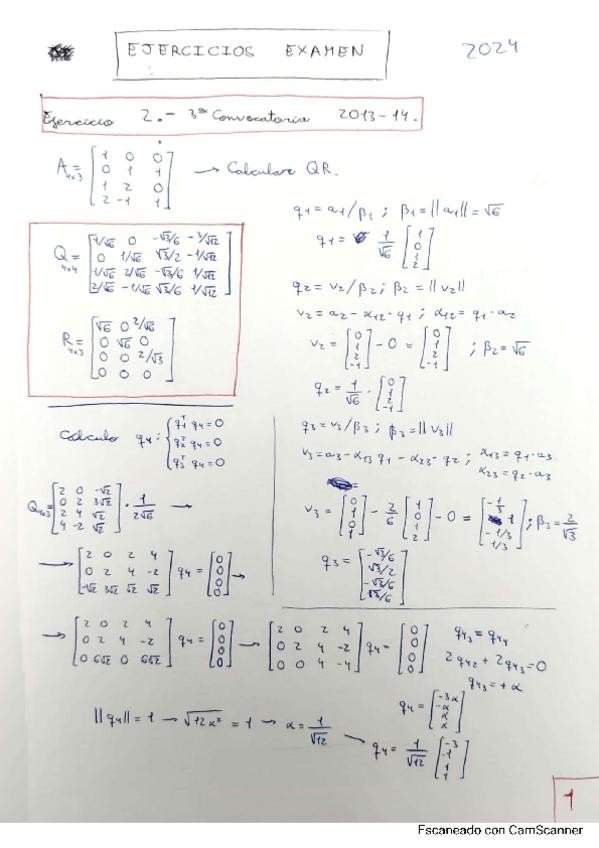 EJERCICIOS EXAMEN
2024
Ejercicio 2.- 3ª Convocatoria 2013-14.
A 4x3 = [1 0 0; 0 1 1; 1 2 0; 2 -1 1] → Calcular QR.
Q 4x4 = [1/√6 0 -√3/6 -3/√12; 0 1/√6 √3/2 -1/√12; 1/√6 2/√6 -√3/6 1/√12; 2/√6 -1/√6 √3/6 1/√12]
R 4x3 = [√6 0 2/√6; 0 √6 0; 0 0 2/√3; 0 0 0]
q1 = a1/β1 ; β1 = ||a1|| = √6
q1 = 1/√6 [1; 0; 1; 2]
q2 = v2/β2 ; β2 = ||v2||
v2 = a2 - α12 · q1 ; α12 = q1 · a2
v2 = [0; 1; 2; -1] - 0 = [0; 1; 2; -1] ; β2 = √6
q2 = 1/√6 · [0; 1; 2; -1]
q3 = v3/β3 ; β3 = ||v3||
v3 = a3 - α13 q1 - α23 · q2 ; α13 = q1 · a3
α23 = q2 · a3
v3 = [0; 1; 0; 1] - 2/6 [1; 0; 1; 2] - 0 = [-1/3; 1; -1/3; 1/3] ; β3 = 2/√3
q3 = [-√3/6; √3/2; -√3/6; √3/6]
Calculo q4 : { q1ᵀ q4 = 0
q2ᵀ q4 = 0
q3ᵀ q4 = 0
Q 4x3 = [2 0 -√2; 0 2 3√2; 2 4 √2; 4 -2 √2] · 1/2√6 →
→ [2 0 2 4; 0 2 4 -2; -√2 3√2 √2 √2] q4 = [0; 0; 0; 0] →
→ [2 0 2 4; 0 2 4 -2; 0 6√2 0 6√2] q4 = [0; 0; 0; 0] → [2 0 2 4; 0 2 4 -2; 0 0 4 -4] q4 = [0; 0; 0; 0]
q43 = q44
2q42 + 2q43 = 0
q43 = +α
q4 = [-3α; -α; α; α]
||q4|| = 1 → √12α² = 1 → α = 1/√12 → q4 = 1/√12 [-3; -1; 1; 1]
1
Escaneado con CamScanner